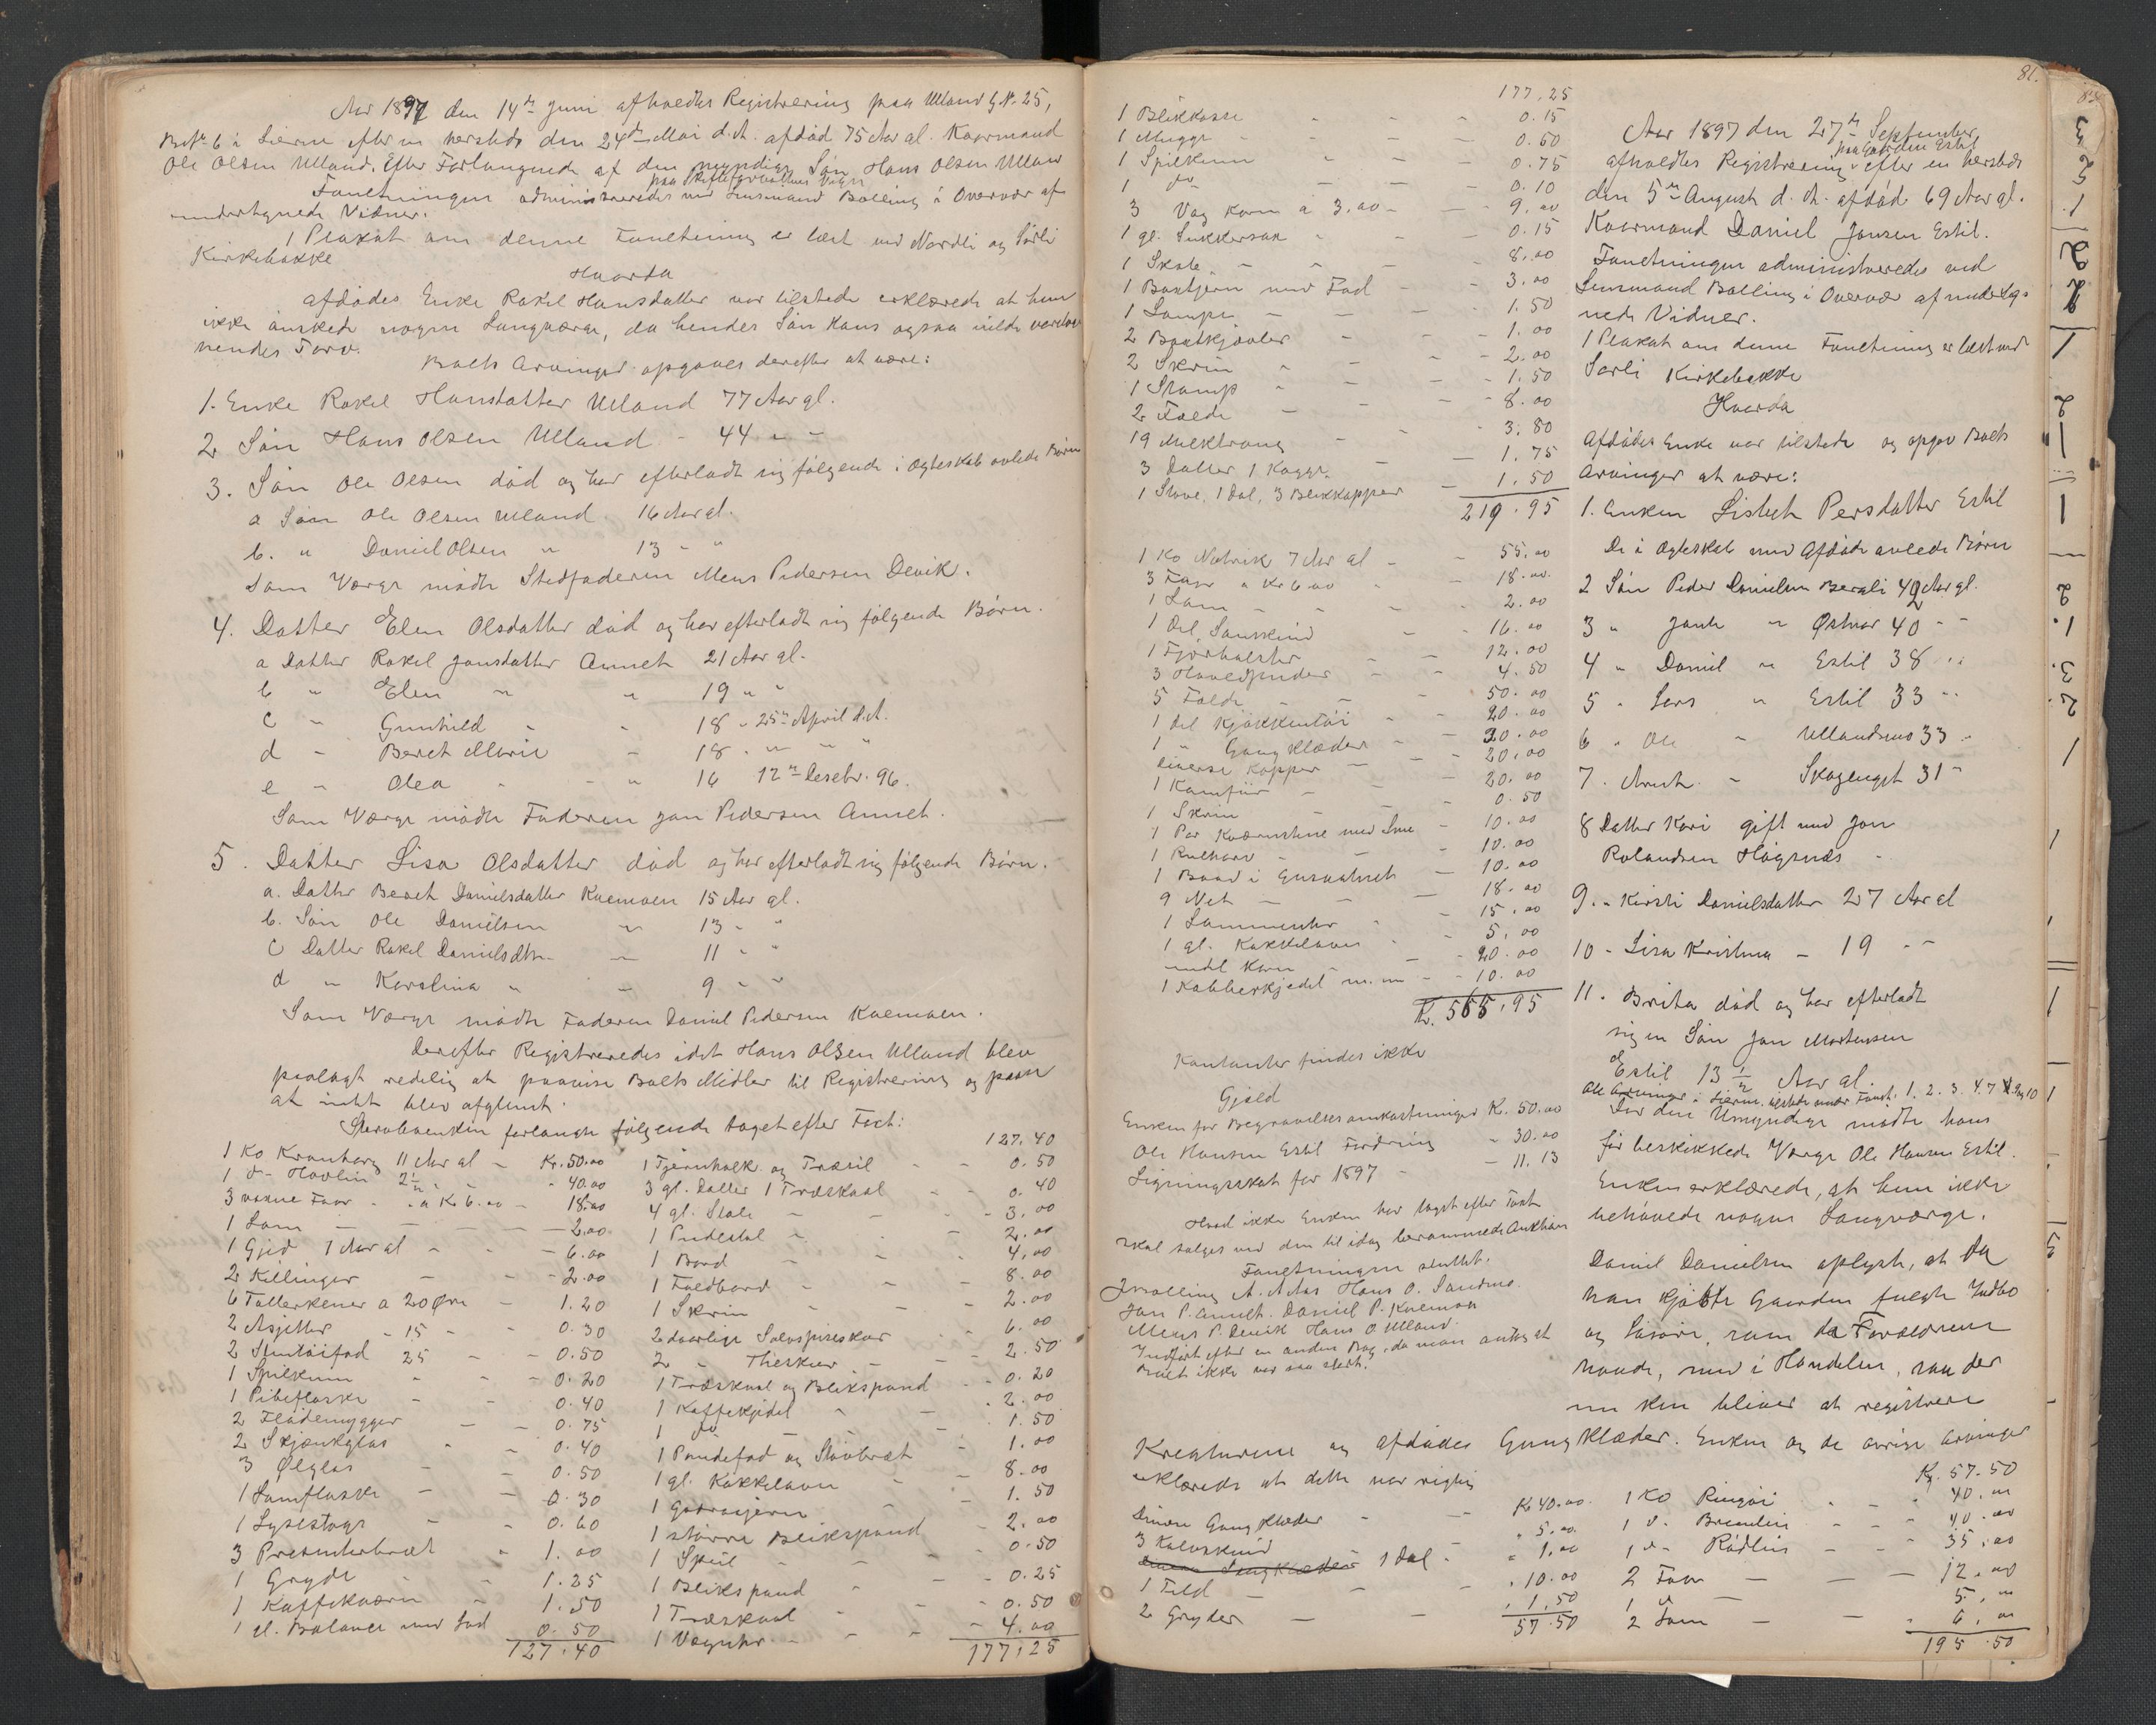 Aar 1897 den 14de Juni afholdtes Registrering paa Ulland G.N. 25,
Br.N. 6 i Lierne efter en hersteds den 24de Mai d.A. afdød 75 Aar gl. Kaarmand
Ole Olsen Ulland. Efter Forlangende af den myndige Søn Hans Olsen Ulland
paa Skifteforvalterens Vegne
Forretningen administreredes ved Lensmand Bolling i Overvær af
undertegnede Vidner.
1 Plakat om denne Forretning er læst ved Nordli og Sørli
Kirkebakke
Hvorda
afdødes Enke Rakel Hansdatter var tilstede erklærede at hun
ikke ønskede nogen Laugværge, da hendes Søn Hans ogsaa vilde varetage
hendes Tarv.
Boets Arvinger opgaves derefter at være:
1. Enke Rakel Hansdatter Ulland 77 Aar gl.
2 Søn Hans Olsen Ulland - 44 " -
3. Søn Ole Olsen død og har efterladt sig følgende i Ægteskab avlede Børn
a Søn Ole Olsen Ulland. 16 Aar gl.
b. " Daniel Olsen " 13 - "
Som Værge mødte Stedfaderen Mens Pedersen Devik.
4. Datter Elen Olsdatter død og har efterladt sig følgende Børn.
a Datter Rakel Jonsdatter Annet 21 Aar gl.
b " Elen " " 19 " "
c - Gunhild - - 18 - 25de April d.A.
d - Beret Marie - 18 - " " "
e - Olea - - " 16 12te Desebr. 96.
Som Værge mødte Faderen Jon Pedersen Annet.
5. Datter Lisa Olsdatter død og har efterladt sig følgende Børn.
a. Datter Beret Danielsdatter Kvemoen 15 Aar gl.
b. Søn Ole Danielsen " 13 - "
c Datter Rakel Danielsdtr - 11 - "
d " Karolina " - 9 - "
Som Værge mødte Faderen Daniel Pedersen Kvemoen.
Derefter Registreredes idet Hans Olsen Ulland blev
paalagt redelig at paavise Boets Midler til Registrering og paase
at intet blev afglemt.
Stervboenken forlangte følgende taget efter Taxt:
1 Ko Kranborg 11 Aar gl - Kr. 50.00
1 do Hovlin 2 1/2 " - 40.00
3 voxne Faar - a Kr 6.00 - 18.00
1 Lam - 2.00
1 Gjed 1 Aar gl - 6.00
2 Killinger - 2.00
6 Tallerkener a 20 Øre - 1.20
2 Asjetter - 15 - 0.30
2 Stentøifad 25 - 0.50
1 Spilkum - 0.20
1 Pibeflaske - 0.40
2 Flødemugger - 0.75
2 Skjænkglas - 0.40
3 Ølglas - 0.50
1 Lomflaske - 0.30
1 Lysestage - 0.60
3 Presenterbræt - 1.00
1 Gryde - 1.25
1 Kaffekværn - 1.50
1 gl. Balance med Lod 0.50
127.40
127.40
1 Tjernholk og Træsil - 0.50
3 gl. Daller 1 Træskaal - 0.40
4 gl. Stole - 3.00
1 Pudestol - 2.00
1 Bord - 4.00
1 Foldbord - 8.00
1 Skrin - 2.00
2 daarlige Sølvspiseskeer - 6.00
2 " Theskeer - 2.50
1 Træskaal og Blikspand - 0.20
1 Kaffekjedel - 2.00
1 do - 1.50
1 Pandefad og Støvbræt - 1.00
1 gl. Kakkelovn - 8.00
1 Gorrojern - 1.50
1 større Blikspand - 2.00
1 Speil - 0.50
1 Blikspand - 0.25
1 Træskaal - 0.50
1 Væguhr - 4.00
177.25
177.25
1 Blikkasse - 0.15
1 Mugge - 0.60
1 Spilkum - 0.75
1 do - 0.10
3 Vog Korn a 3.00 - 9.00
1 gl. Sukkersax - 0.15
1 Skab - 8.00
1 Baxtjern med Fad - 3.00
1 Lampe - 1.50
2 Baxtkjævler - 1.00
2 Skrin - 2.00
1 Stamp - 1.50
2 Fælde - 8.00
19 Melktroug - 3.80
3 Daller 1 Kagge - 1.75
1 Stove, 1 Dal, 3 Blikkopper - 1.50
219.95
1 Ko Notrik 7 Aar gl - 55.00
3 Faar a Kr 6.00 - 18.00
1 Lam - 2.00
1 Del Saueskind - 16.00
1 Fjørbolster - 12.00
3 Hovedpuder - 4.50
5 Fælde - 50.00
1 Del Kjøkkentøi - 20.00
1 " Gangklæder - 30.00
Diverse Kopper - 20.00
1 Komfur - 20.00
1 Skrin - 0.50
1 Par Kværnstene med Smie - 10.00
1 Rulharv - 10.00
1 Baad i - 10.00
9 Net - 18.00
1 Lommeuhr - 15.00
1 gl. Kakkelovn - 5.00
endel Korn - 20.00
1 Kobberkjedel m.m - 10.00
Kr. 565.95
Kontanter findes ikke
Gjæld
Enken for Begravelsesomkostninger Kr. 50.00
Ole Hansen Estil Fordring - 30.00
Ligningsskat for 1897 - 11.13
Hvad ikke Enken har taget efter Taxt
skal sælges ved den til idag berammede Auktion
Forretningen sluttet.
J Bolling A. Aas Hans O. Sandmo.
Jon P. Annet. Daniel P. Kvemoen
Mens P. Devik Hans O Ulland.
Indført efter en anden Bog, da man antog at
Boet ikke var saa stort.
81.
Aar 1897 den 27de September
paa Gaarden Estil
afholdtes Registrering efter en hersteds
den 5te August d. A. afdød 69 Aar gl.
Kaarmand Daniel Jonsen Estil.
Forretningen administreredes ved
Lensmand Bolling i Overvær af underteg-
nede Vidner.
1 Plakat om denne Forretning er læst ved
Sørli Kirkebakke
Hvorda
Afdødes Enke var tilstede og opgav Boets
Arvinger at være:
1. Enken Lisbet Persdatter Estil
De i Ægteskab med Afdøde avlede Børn
2 Søn Peder Danielsen Bergli 42 Aar gl.
3 " Jonte " Østnor 40 - -
4 " Daniel " Estil 38 - -
5 - Lars " Estil 33 - -
6 " Ole - Ullandmo 33 -
7. Arnt. - Skogenget 31 -
8 Datter Kari gift med Jon
Rolandsen Høgsnes -
9. - Kirsti Danielsdatter 27 Aar gl
10 - Lisa Kristina - 19 - -
11. Brita død og har efterladt
sig en Søn Jon Mortensen
Estil 13 1/2 Aar gl.
Alle Arvinger i Lierne. tilstede under Forret. 1. 2. 3. 4. 7 9 og 10
For den Umyndige mødte hans
før beskikkede Værge Ole Hansen Estil.
Enken erklærede, at hun ikke
behøvede nogen Laugværge.
Daniel Danielsen oplyste, at da
han kjøbte Gaarden fulgte Indbo
og Løsøre, som da Forældrene
havde, med i Handelen, saa der
nu kun bliver at registrere
Kreaturene og afdødes Gangklæder. Enken og de øvrige Arvinger
erklærede at dette var rigtig
Diverse Gangklæder - Kr 40.00
3 Kalveskind - 5.00
1 Dal - 1.00
1 Feld - 10.00
2 Gryder - 1.50
57.50
Kr. 57.50
1 Ko Ringøi - 40.00
1 do Bremlin - 40.00
1 do Rødlin - 35.00
2 Faar - 12.00
1 do - 5.00
2 Lam - 6.00
195.50